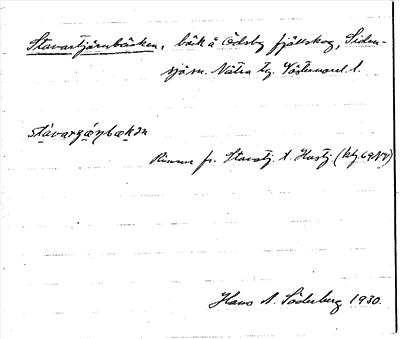 Stavartjärnbäcken, bäck å Ödsby fjällskog, Siden-
sjö sn. Nätra tg. Västernorrl. l.
Rinner fr. Stavatj. t. Hustj.
Hans A. Söderberg 1930.